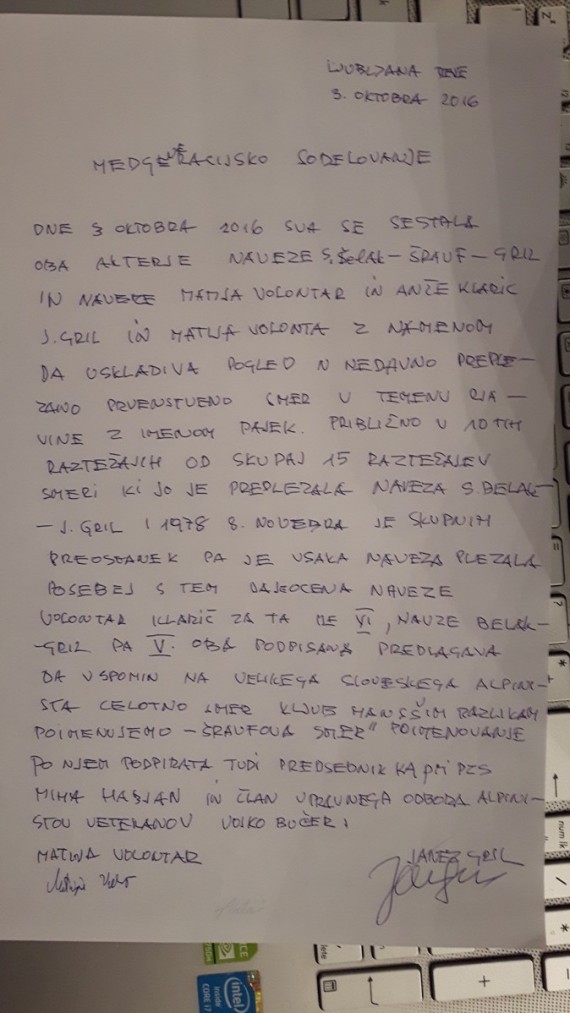 LJUBLJANA DNE
3. OKTOBRA 2016
MEDGENERACIJSKO SODELOVANJE
DNE 3 OKTOBRA 2016 SVA SE SESTALA
OBA AKTERJE NAVEZE S. ŠELAK - ŠRAUF - GRIL
IN NAVEZE MATIJA VOLONTAR IN ANŽE KLARIČ
J. GRIL IN MATIJA VOLONTA Z NAMENOM
DA USKLADIVA POGLED N NEDAVNO PREPLE-
ZANO PRVENSTVENO SMER V TEMENU RJA-
VINE Z IMENOM PAJEK. PRIBLIŽNO V 10 TIH
RAZTEŽAJIH OD SKUPAJ 15 RAZTEŽAJEV
SMERI KI JO JE PREPLEZALA NAVEZA S. BELAK-
- J. GRIL 1978 8. NOVEMBRA JE SKUPNIH
PREOSTANEK PA JE VSAKA NAVEZA PLEZALA
POSEBEJ S TEM DA JE OCENA NAVEZE
VOLONTAR KLARIČ ZA TA DE VI, NAVZE BELAK-
-GRIL PA V. OBA PODPISANA PREDLAGAVA
DA V SPOMIN NA VELIKEGA SLOVESKEGA ALPINI-
STA CELOTNO SMER KLJUB MANJŠIM RAZLIKAM
POIMENUJEMO - ŠRAUFOVA SMER" POIMENOVANJE
PO NJEM PODPIRATA TUDI PREDSEDNIK KA pri PZS
MIHA HABJAN IN ČLAN UPRAVNEGA ODBORA ALPINI-
STOV VETERANOV VOJKO BUČER.
MATIJA VOLONTAR JANEZ GRIL
intel
inside
CORE i7
num lk